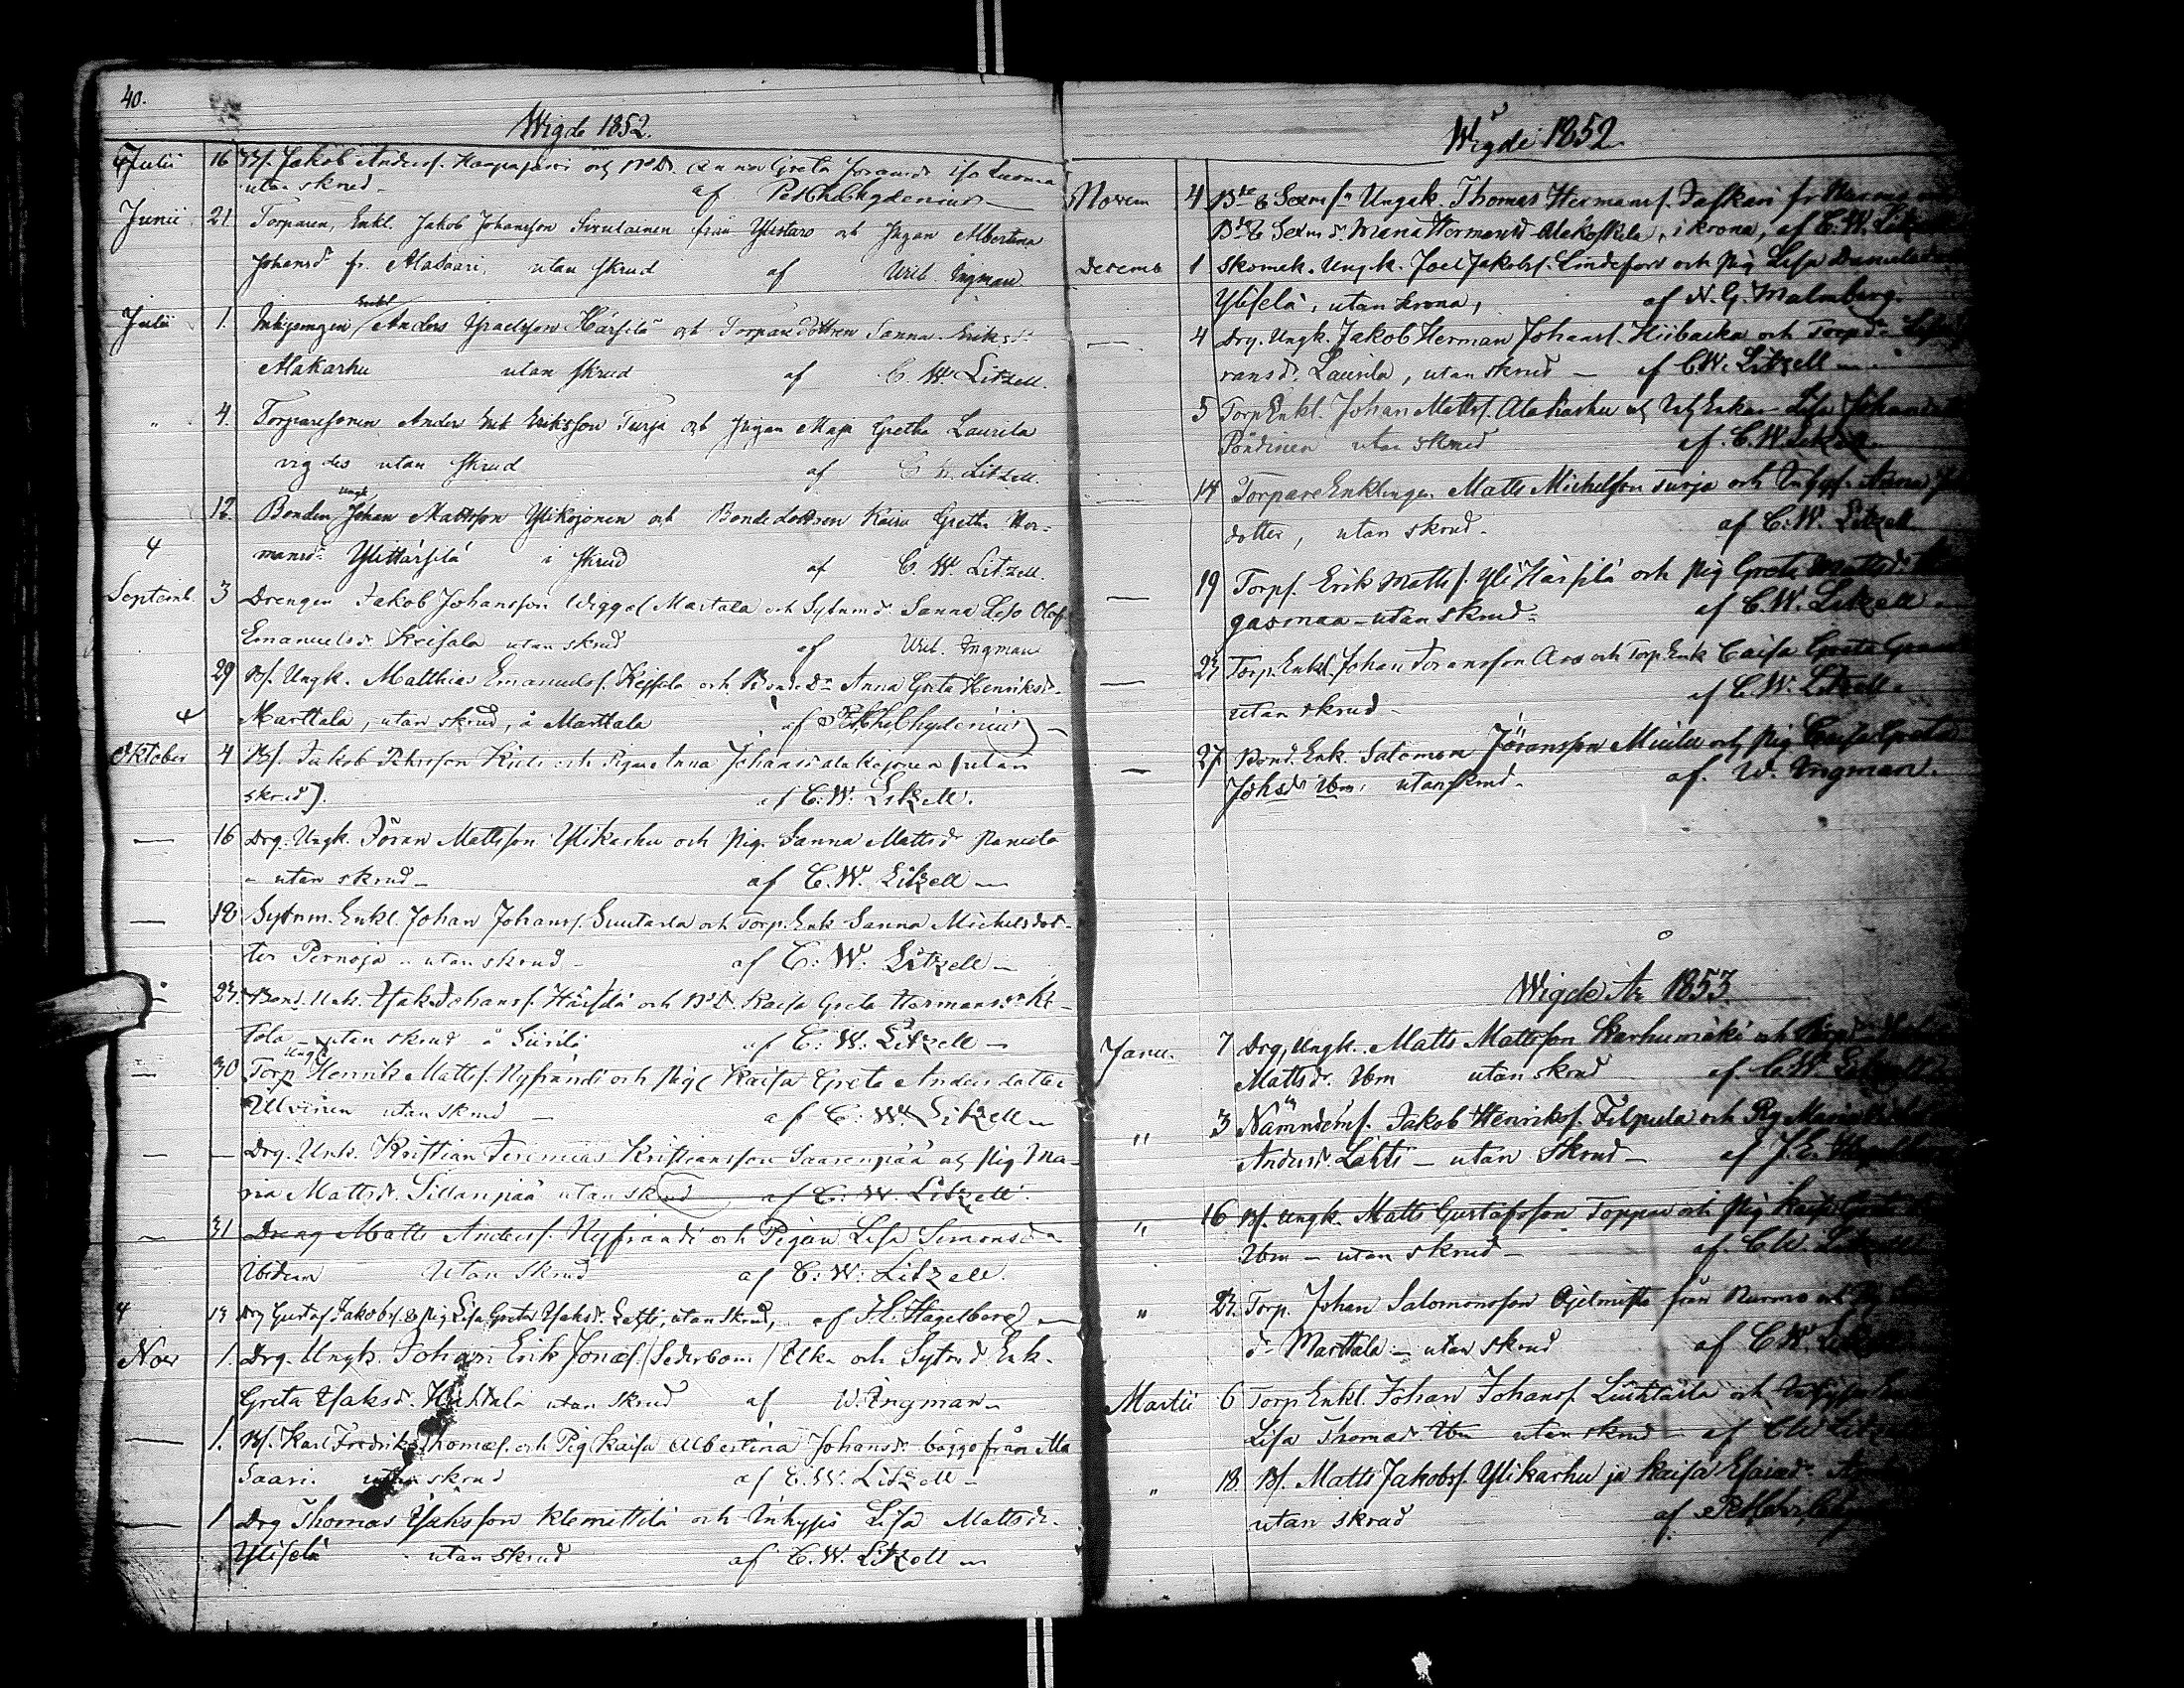 40.
Wigde 1852.
Julii 16 Bf. Jakob Andersf. Haapajärvi och Bd. Anna Greta Joransdr Iso Luoma
utan skrud - af Pet Chr Chydenius
Junii 21 Torparen, Enkl. Jakob Johansson Sirulainen från Ylistaro och Pigan Albertina
Johansd. fr. Alasaari, utan skrud af Wilh. Ingman
Julii 1. Inhysingen Enkl Anders Ysraelsson Härsilä och Torparedottren Sanna Eriksd.
Alakarhu utan skrud af C. W. Litzell.
" 4. Torparesonen Anders Erik Eriksson Turja och Pigan Maja Gretha Laurila
vigdes utan skrud af C. W. Litzell.
12. Bonden Ungk. Johan Mattsson Ylikojonen och Bondedottren Kaisa Gretha Her=
mansd. Ylittärsilä i skrud af C. W. Litzell.
4
Septemb. 3 Drengen Jakob Johansson Wiggel Martala och Sytnmd. Sanna Lisa Olof
Emanuelsdr. Keisala utan skrud af Wilh. Ingman
29 Bf. Ungk. Matthias Emanuelsf. Keisala och Bonded. Anna Greta Henriksdr.
4 Marttala, utan skrud, å Marttala af Pet. Chr. Chydenius
Oktober 4 Bf. Jakob Johnsson Kieli och Pigan Anna Johansd Alakojonen (utan
skrud). af C. W. Litzell.
— 16 Drg. Ungk. Jöran Mattsson Ylikarhu och Pig. Sanna Mattsdr Panula
- utan skrud - af C. W. Litzell
— 18 Sytnm. Enkl. Johan Johansf. Suutarla och Torp. Enk Sanna Michelsdot-
ter Pernaja - utan skrud - af C. W. Litzell
— 23. Bond. Unk. Isak Johansf. Härsilä och Bd. Kaisa Greta Hermansdr Ke-
tola - utan skrud å Siirilä af C. W. Litzell -
— 30 Torp Ungk Henrik Mattsf. Nyfrändi och Pige Kaisa Greta Andersdotter
Ulvinen utan skrud — af C. W. Litzell
— — Drg. Unk. Kristian Jeremias Kristiansson Saarenpää och Pig Ma-
ria Mattsdr. Sillanpää utan skrud af C. W. Litzell.
— 31 Dreng Matts Andersf. Nyfrändi och Pigan Lisa Simonsdr
Ibidem Utan skrud af C. W. Litzell.
4 13 Drg Gustaf Jakobsf & Pig Lisa Greta Isaksdr. Lahti, utan skrud, af J. E. Hagelberg
Nov 1. Drg. Ungk. Johan Erik Jonaf. (Sederbom) Elk. och Sytnd Enk.
Greta Isaksd. Huhtala utan skrud af W. Ingman
— 1. Bf. Karl Fredrik Thomasf. och Pig Kaisa Albertina Johansdr. bägge från Ala
saari. utan skrud af C. W. Litzell -
— 1 Drg Thomas Isaksson Klemettilä och Inhyses Lisa Mattsdr.
Yliselä utan skrud af C. W. Litzell
Wigde 1852.
Novem 4 Bde & Sexmsn Ungk. Thomas Hermansf. Jaskari fr
Bd & Sexmd. Maria Hermansd Alakoskela, i krona, af C. W. Litzell
Decemb 1 Skomk. Ungk. Joel Jakobsf. Lindefors och Pig Lisa Danielsd
Yliselä, utan krona, af N. G. Malmberg.
— 4 Drg. Ungk. Jakob Herman Johansf. Hiibacka och Torpd
ransd. Laurila, utan skrud — af C. W. Litzell
5 Torp Enkl. Johan Mattsf. Alakarhu och Enkan Lisa Johansd
Pöndinen utan skrud af C. W. Litzell
— 14 Torpare Enklingen Matts Michelsson Turja och Inhys. Anna
dotter, utan skrud - af C. W. Litzell
— 19 Torpf. Erik Mattsf. Yli Härsilä och Pig Greta Mattsdr
gasmaa - utan skrud - af C. W. Litzell
— 23 Torp. Enkl. Johan Joransson Aro och Torp. Enk Caisa Greta
utan skrud - af C. W. Litzell
— 27 Bond. Enk. Salomon Jöransson Mielu och Pig Caisa Greta
Johsdr Ibm, utan skrud - af W. Ingman.
Wigde År 1853.
Janu. 7 Drg, Ungk. Matts Mattsson Karhumäki och
Mattsdr. Ibm utan skrud af C W Litzell
" 3 Nämndemf. Jakob Henriksf. Filpula och Pig Maria
Andersd. Lahti — utan skrud — af J. E. Hagelberg
" 16 Bf. Ungk. Matts Gustafsson Toppar och Pig Kaisa Greta
Ibm - utan skrud - af C W. Litzell
" 23. Torp. Johan Salomonsson Ojelmista från Nurmo och Pig
d. Marttala - utan skrud af C W. Litzell
Martii 6 Torp Enkl. Johan Johansf. Liuhtarla och Inhyses
Lisa Thomasd Ibm utan skrud af C W Litzell
" 18. Bf. Matts Jakobsf. Ylikarhu ja Kaisa Esaiasdr.
utan skrud af Pet Chr. Chyd